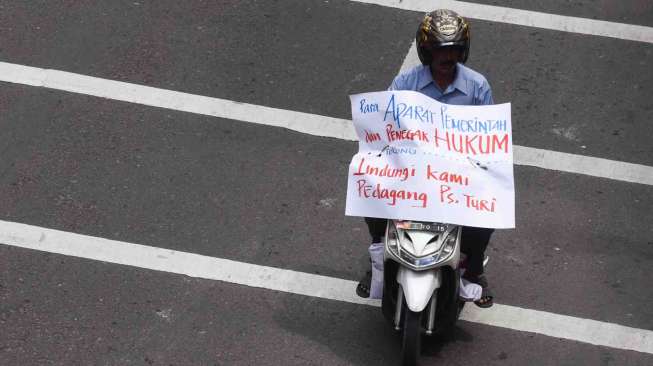 Para APARAT PEMERINTAH
dan PENEGAK HUKUM
TOLONG
Lindungi kami
PEdagang Ps. TURi